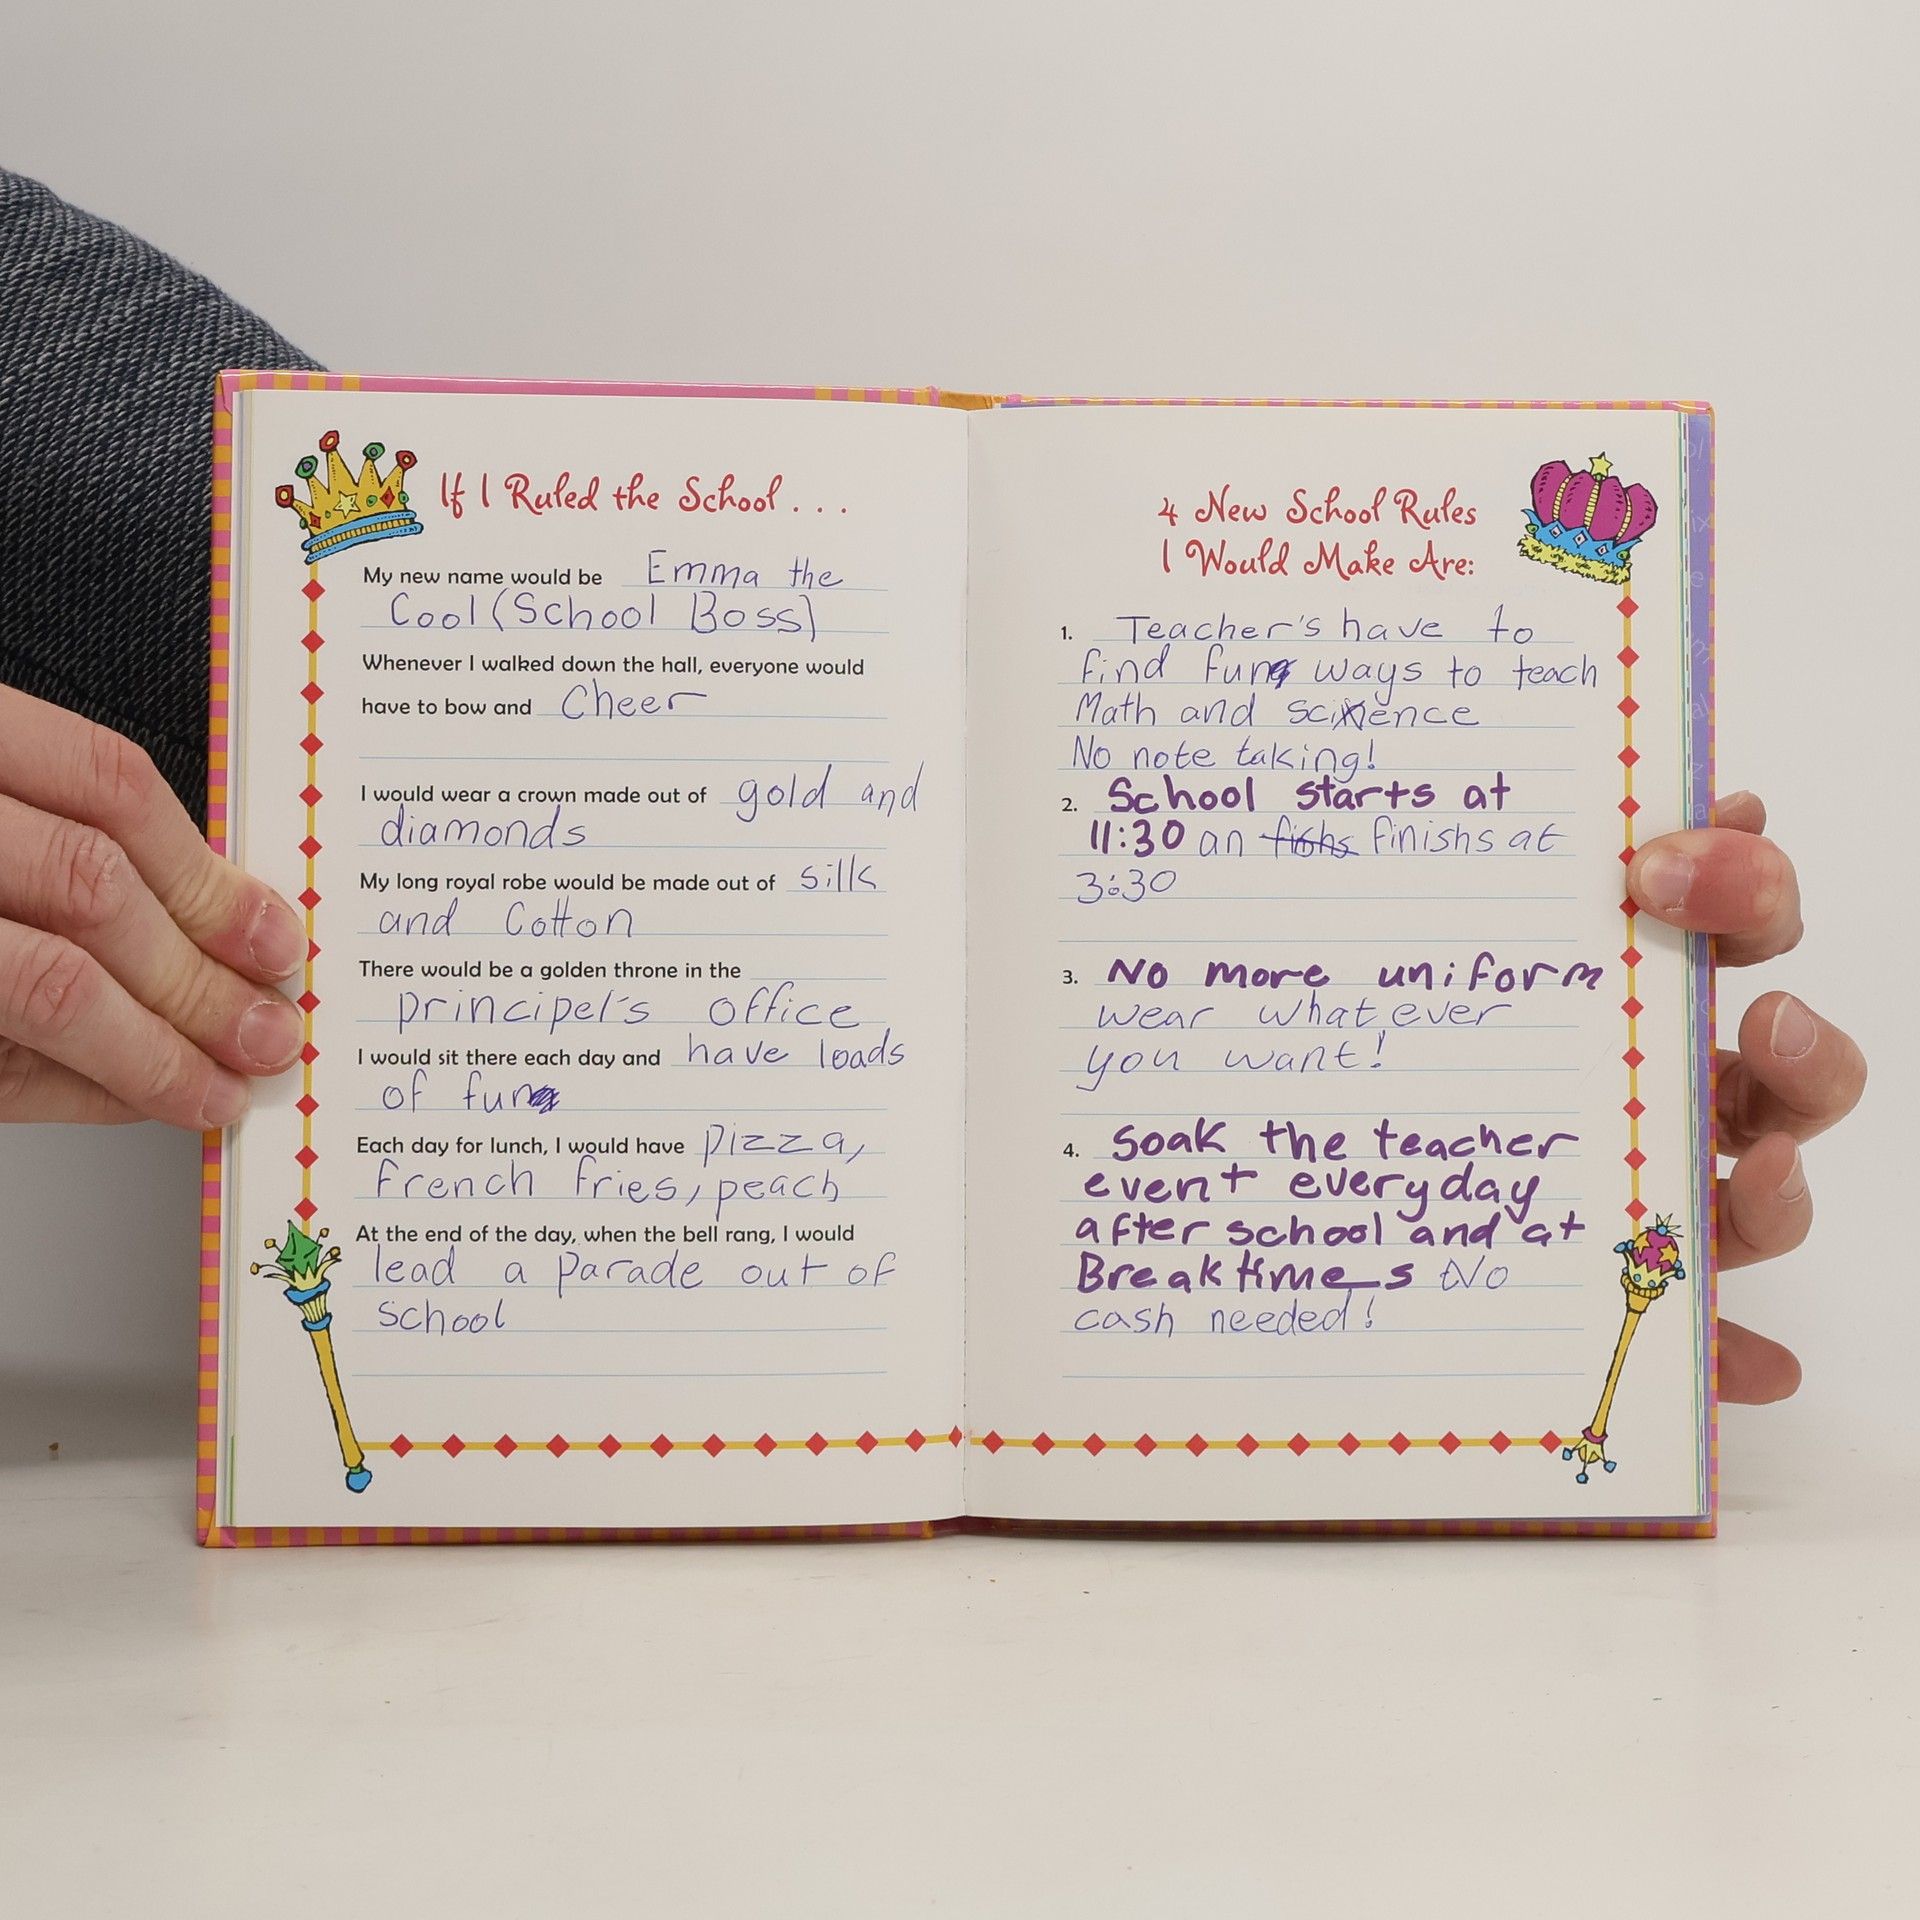 If I Ruled the School . . .
My new name would be Emma the
Cool (School Boss)
Whenever I walked down the hall, everyone would
have to bow and Cheer
I would wear a crown made out of gold and
diamonds
My long royal robe would be made out of silk
and Cotton
There would be a golden throne in the
principel's office
I would sit there each day and have loads
of fun
Each day for lunch, I would have pizza,
french fries, peach
At the end of the day, when the bell rang, I would
lead a parade out of
school
4 New School Rules
I Would Make Are:
1. Teacher's have to
find fun ways to teach
Math and science
No note taking!
2. School starts at
11:30 an fishs finishs at
3:30
3. No more uniform
wear whatever
you want!
4. Soak the teacher
event everyday
after school and at
Breaktimes No
cash needed!